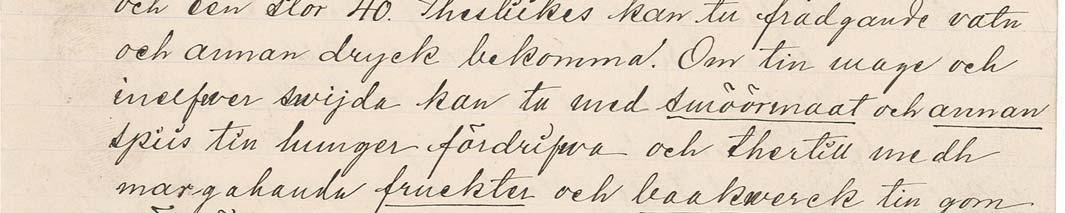 och een stor 40. Theslikes kan tu frådgande vatn
och annan dryck bekomma! Om tin mage och
inelfwer swijda kan tu med smöörmaat och annan
spiis tin hunger fördrifwa och thertill medh
margahanda fruckter och baakwerck tin gom